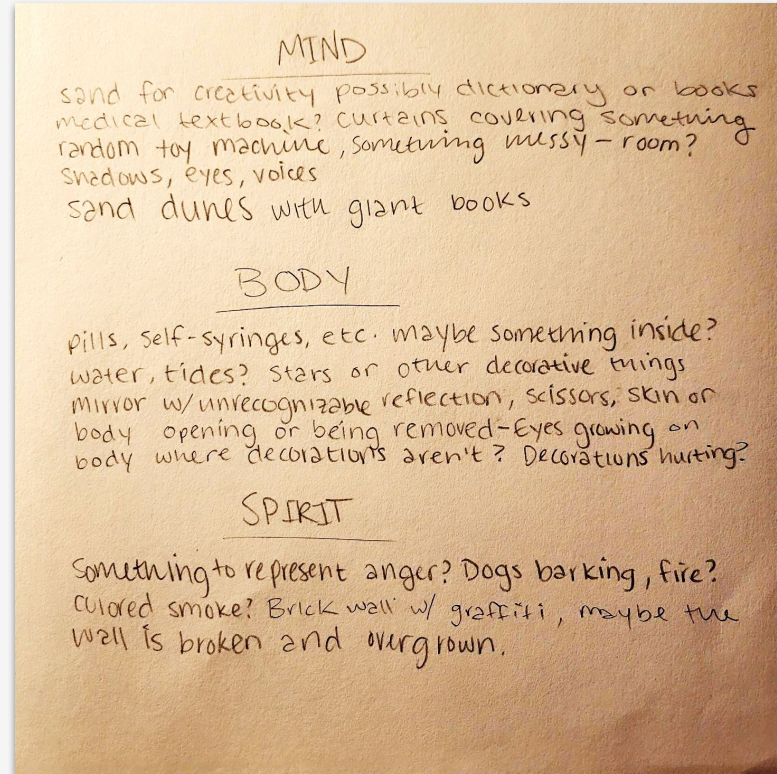 MIND
sand for creativity possibly dictionary or books
medical textbook? curtains covering something
random toy machine, something messy - room?
shadows, eyes, voices
sand dunes with giant books
BODY
pills, self-syringes, etc. maybe something inside?
water, tides? stars or other decorative things
mirror w/unrecognizable reflection, scissors, skin or
body opening or being removed-Eyes growing on
body where decorations aren't? Decorations hurting?
SPIRIT
Something to represent anger? Dogs barking, fire?
colored smoke? Brick wall w/ graffiti, maybe the
wall is broken and overgrown.